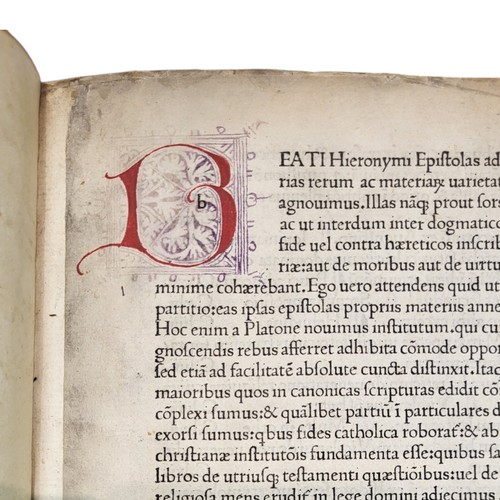 b
B EATI Hieronymi Epiſtolas ad
rias rerum ac materiaꝝ uarietat
agnouimus. Illas nāq; prout sors
ac ut interdum inter dogmatico
fide uel contra hæreticos inscrib
riæ: aut de moribus aut de uirtu
minime cohærebant. Ego uero attendens quid ut
partitio: eas ipsas epiſtolas propriis materiis anne
Hoc enim a Platone nouimus inſtitutum. qui cu
gnoscendis rebus afferret adhibita cōmode oppor
ſed etiā ad facilitatē absolute cuncta diſtinxit. Itac
maioribus quos in canonicas scripturas edidit cō
cōplexi sumus: & quālibet partiū ī particulares d
exorsi sumus: qbus fides catholica roboraſ: & ab
chriſtianæ inſtitutōis fundamenta esse: quibus sa
libros de utriusq; teſtamenti quæſtiōibus: uel de
religiosa mens erudiſ in lege domini adiecimus